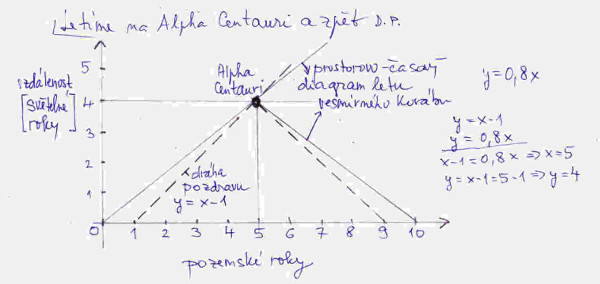 Letíme na Alpha Centauri a zpět D.P.
vzdálenost
[světelné
roky]
5
4
3
2
1
0
1 2 3 4 5 6 7 8 9 10
pozemské roky
Alpha
Centauri
prostorow-časový
diagram letu
vesmírného korábu
dráha
pozdravu
y = x-1
y = 0,8x
y = x-1
y = 0,8x
x-1 = 0,8x ⇒ x=5
y = x-1 = 5-1 ⇒ y=4